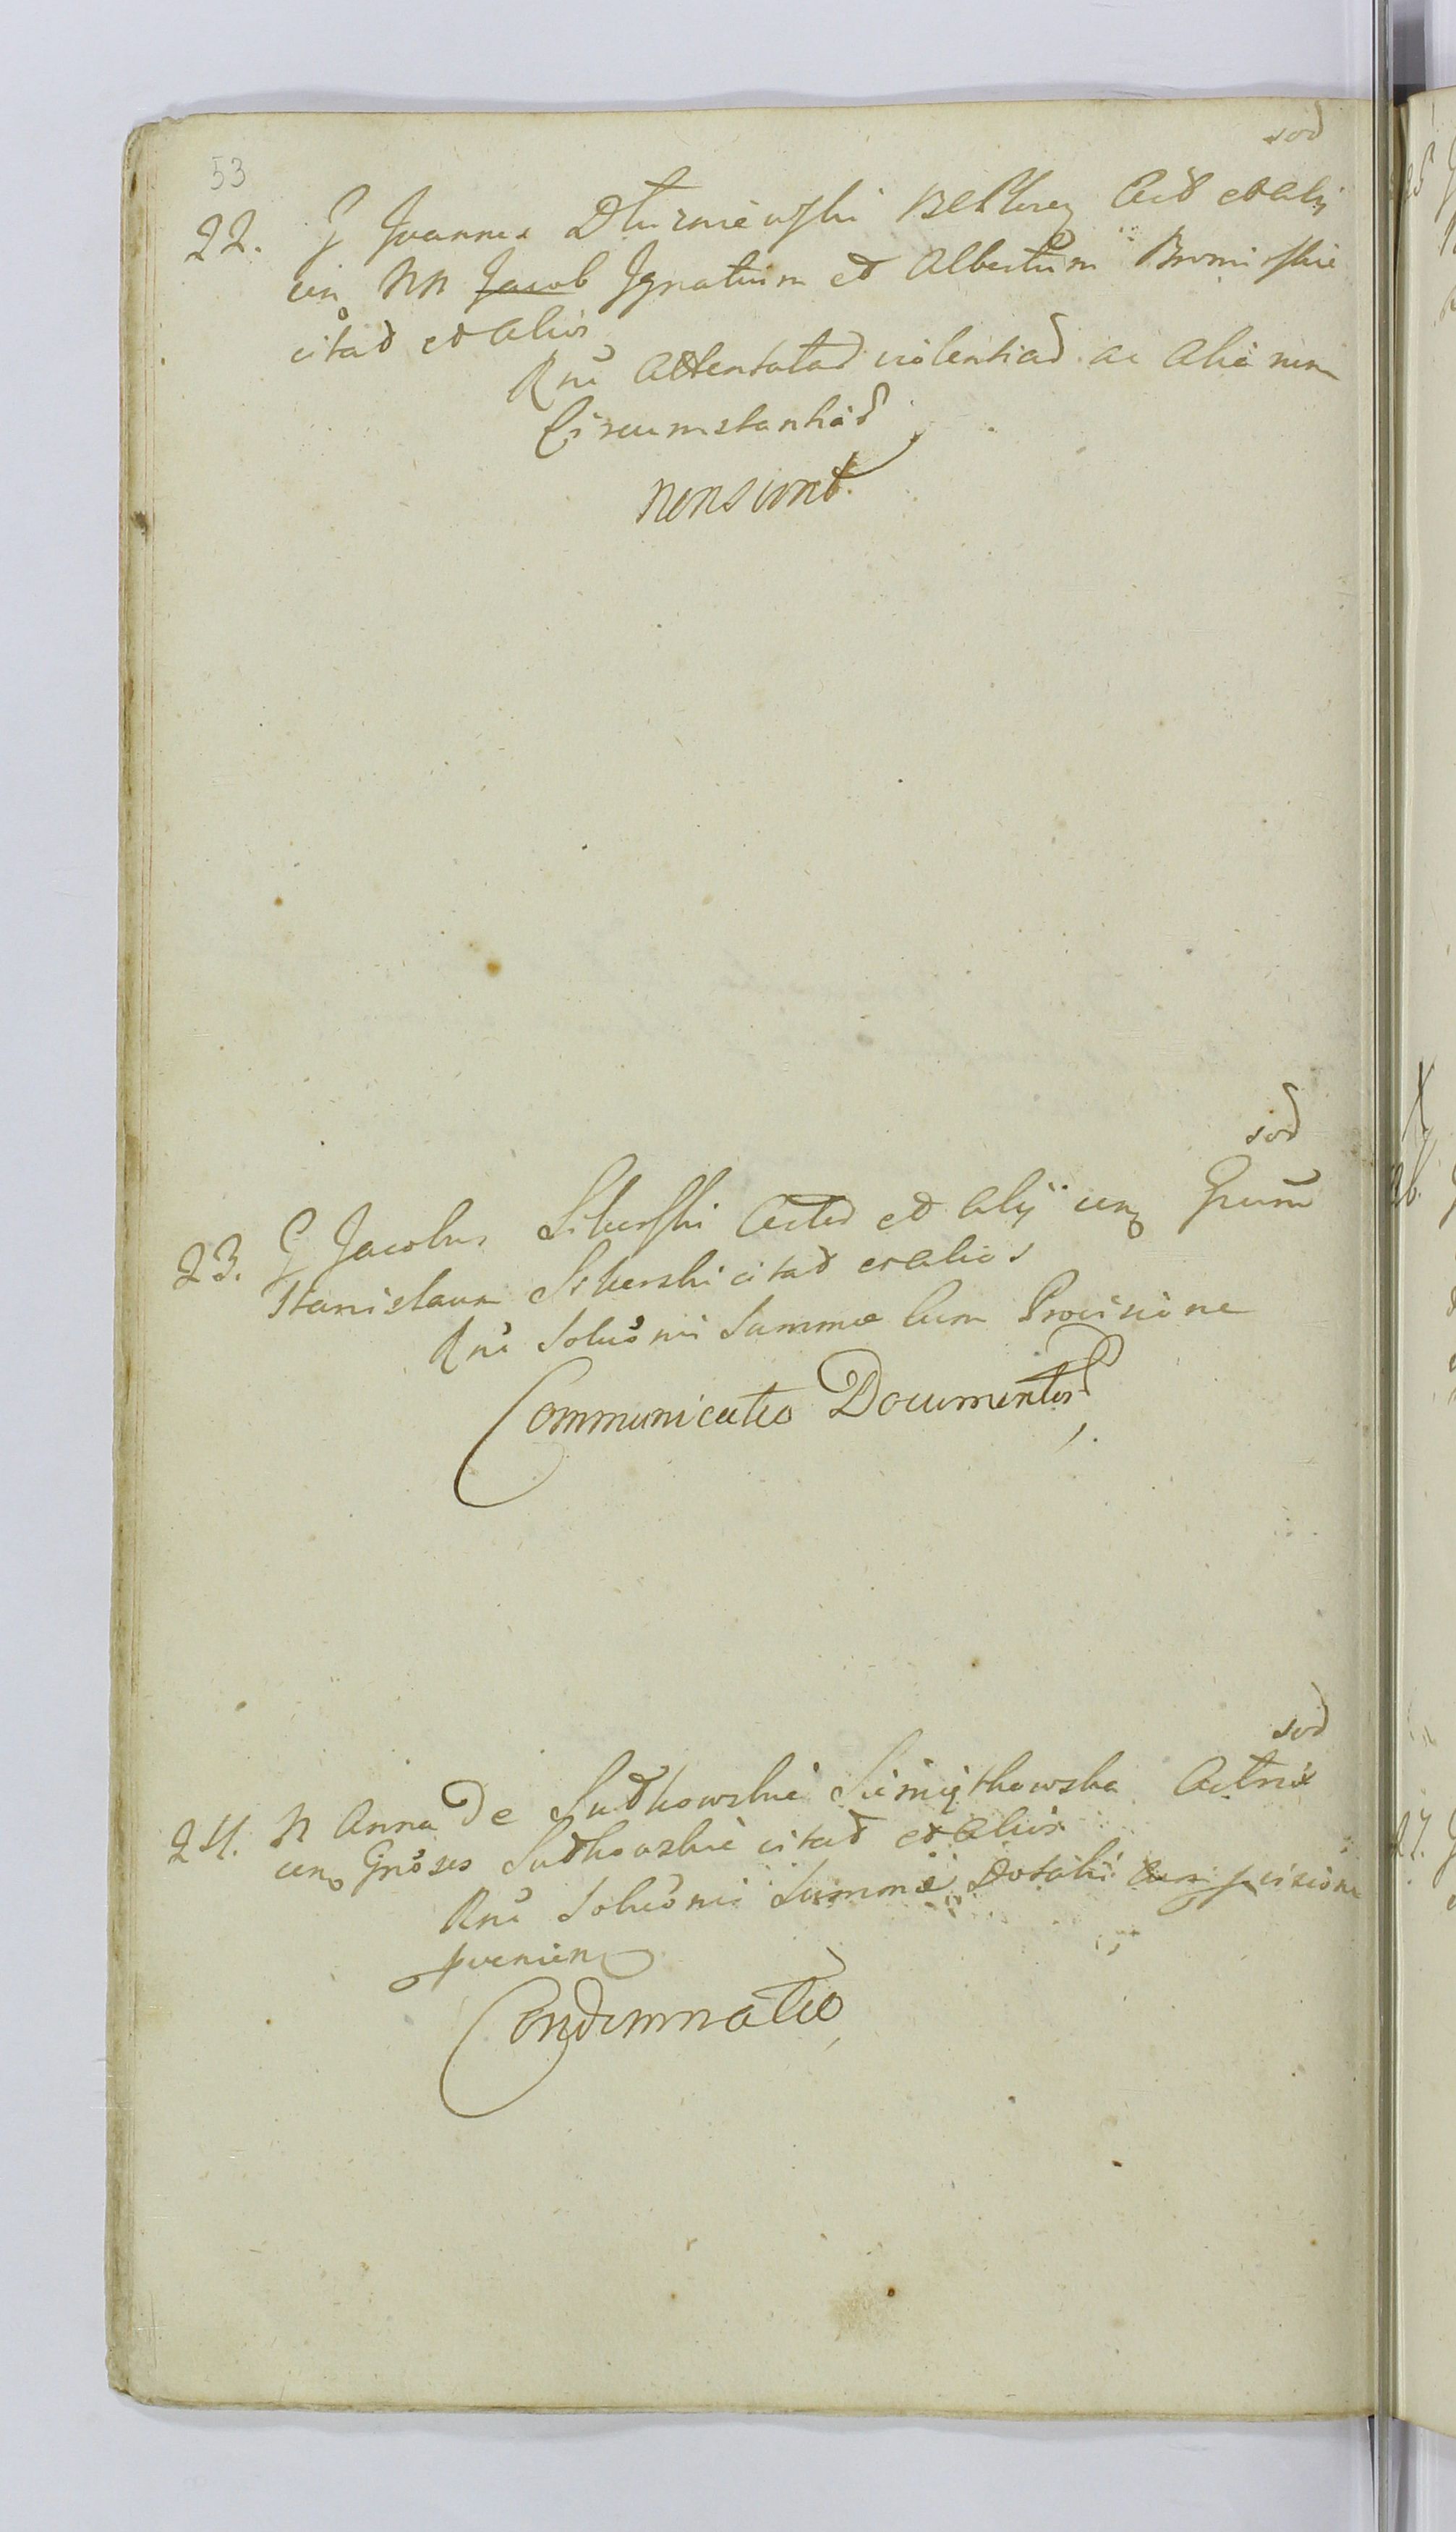 53
sod
22. G Joannes Dłuzniewski Act et alij
cum NN Jacob Ignatium et Albertum Bromirskie
citad et alios
Rne Attentatad violentiad ac aliarum
Circumstantiad
non sunt.
sod
23. G Jacobus Silverski Acted et alij cum Grum
Stanislaum Silverski citad et alios
Rne Soluõnis Summæ Cum Provisione
Communicatio Documentor
sod
24. N Anna De Sudkowskie Siemiątkowska Actrix
cum Gnõsos Sudkowskie citad et alios
Rne Soluõnis Summæ Dotalis cum pvisione
pvenien
Condemnatio